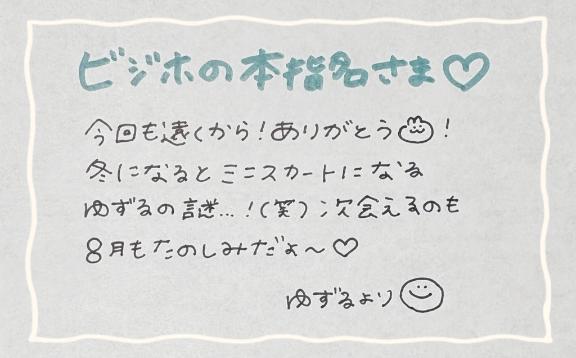 ビジホの本指名さま♡
今回も遠くから！ありがとう！
冬になるとミニスカートになる
ゆずるの謎…！(笑) 次会えるのも
8月もたのしみだよ〜♡
ゆずるより